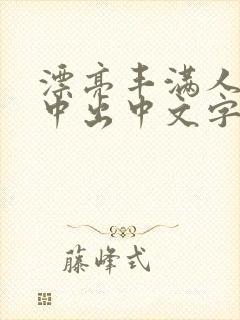 漂亮丰满人
中出中文字
藤峰式